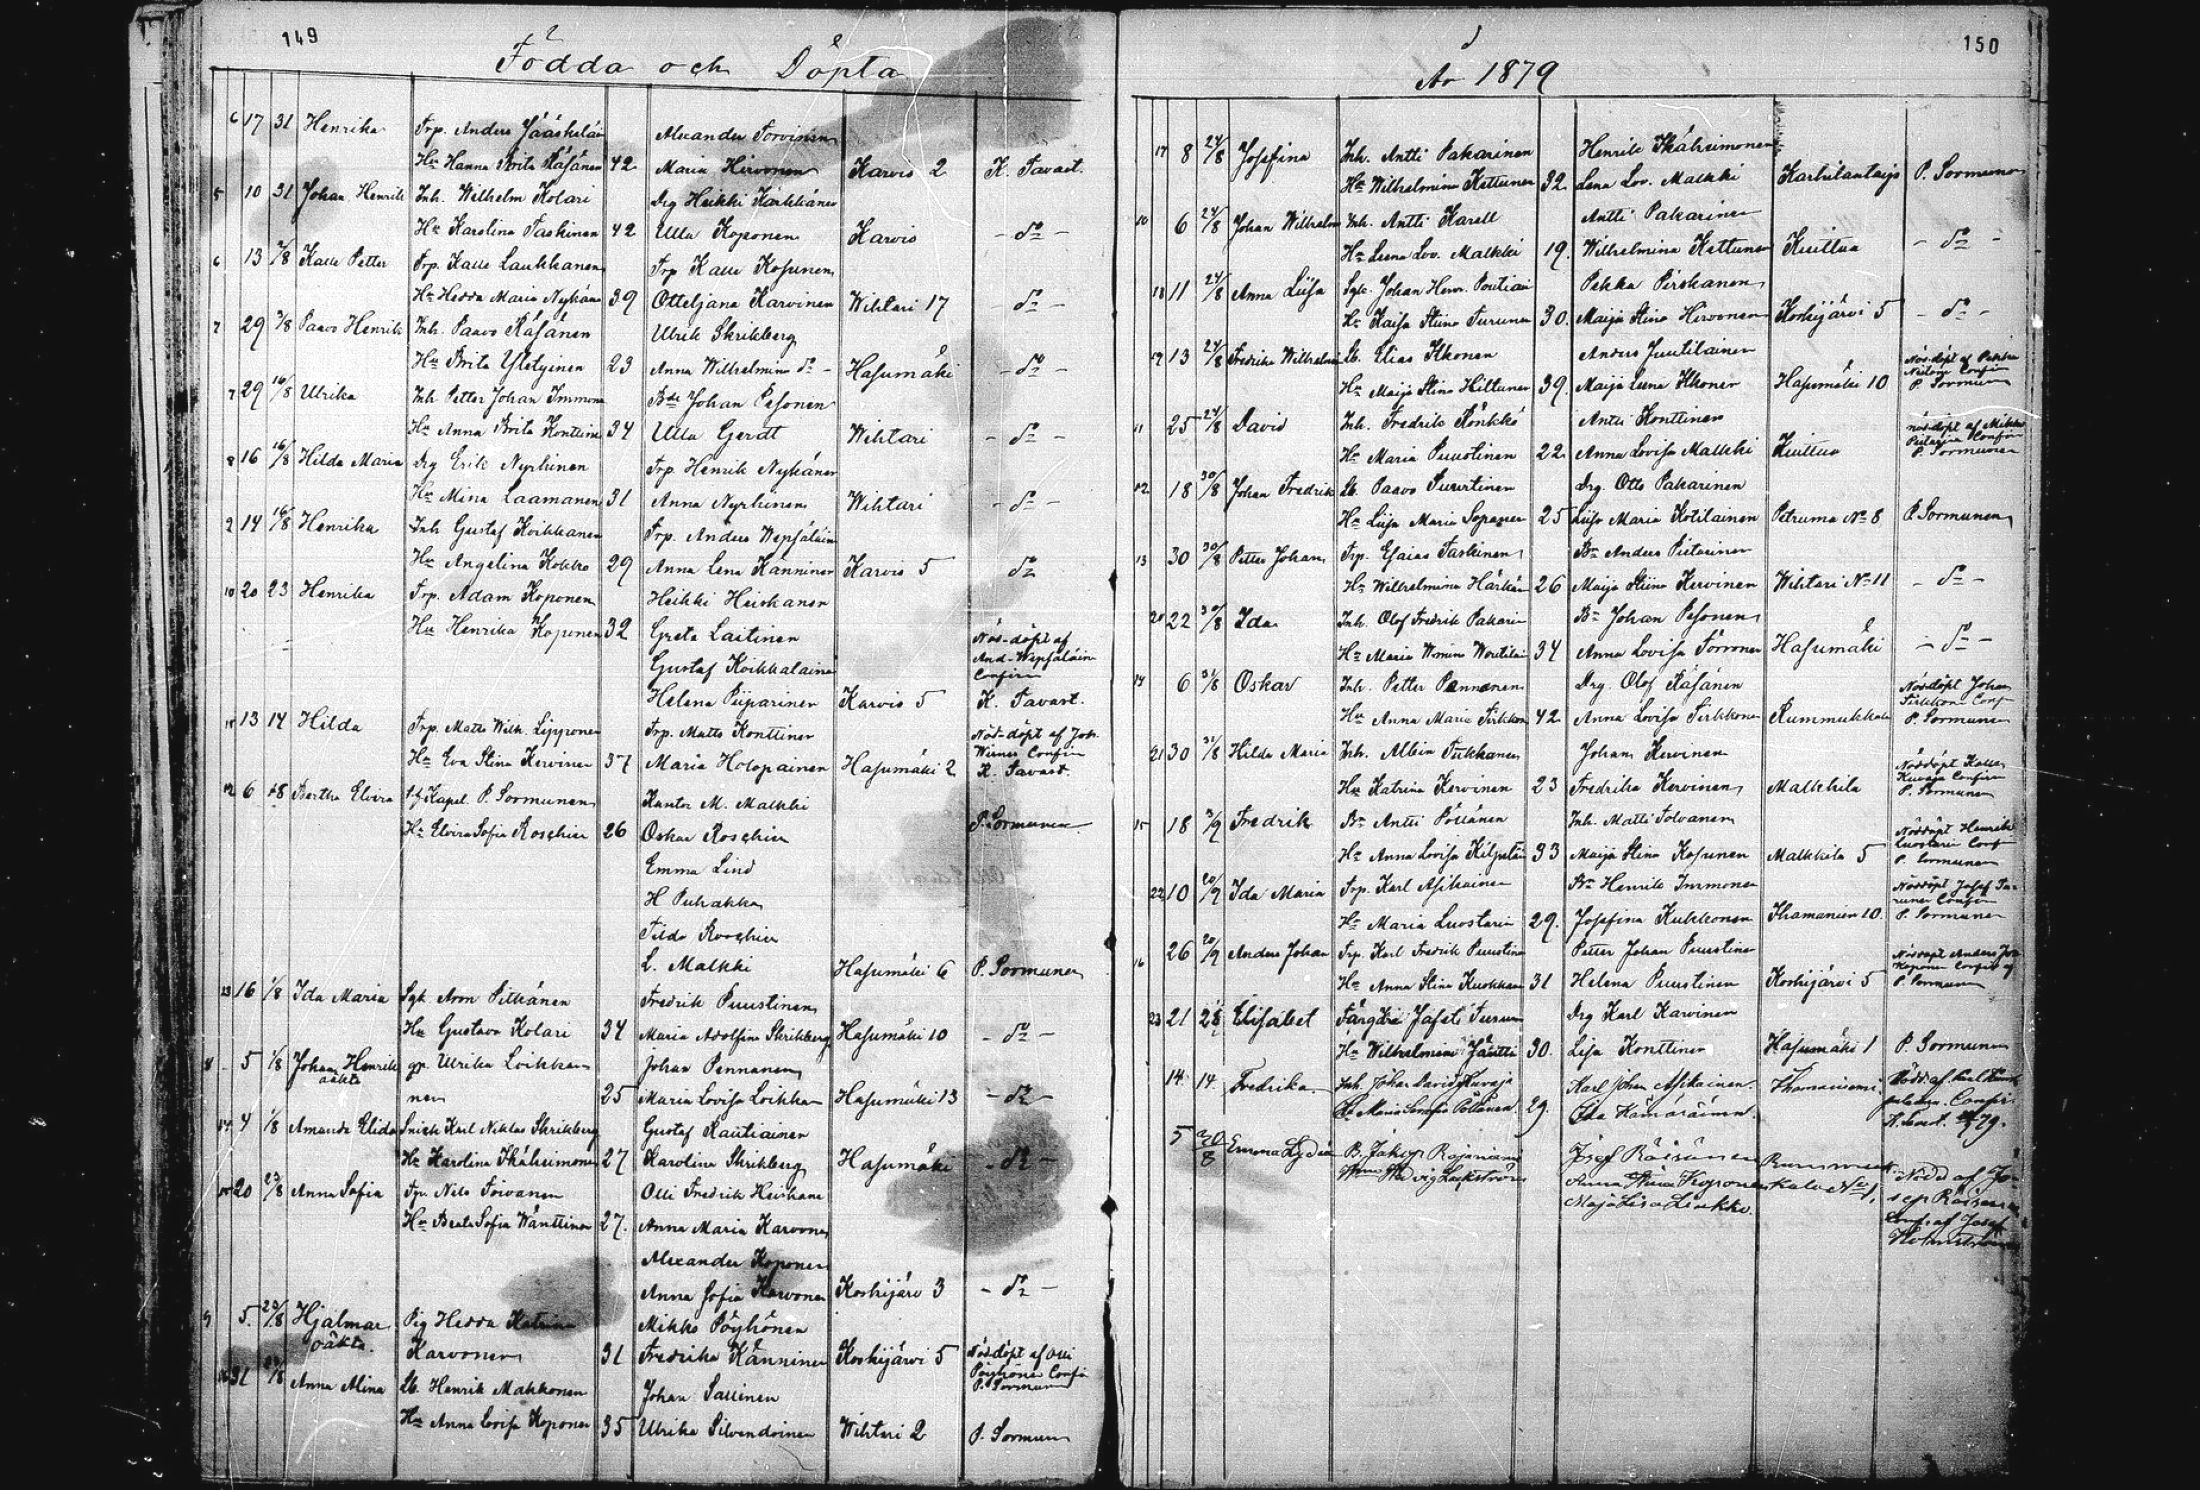 149
Födda och Döpta
6 17 31 Henrika Trp. Anders Jääskeläin Alexander Torvinen
Hu Hanna Brita Räsänen 42 Maria Hirvonen Karvio 2 K. Tavast.
5 10 31 Johan Henrik Inh. Wilhelm Kolari Drg Heikki Kärkkänen
Hu Karolina Taskinen 42 Ulla Koponen Karvio - do -
6 13 Kalle Petter Trp. Kalle Laukkanen Trp Kalle Kosunen
Hu Hedda Maria Nykänen 39 Otteljana Karvinen Wihtari 17 do
7 29 Paavo Henrik Inh. Paavo Räsänen Ulrik Skrikberg
Hu Brita 23 Anna Wilhelmina do - Hasumäki - do -
7 29 16/8 Ulrika Inh Petter Johan Immonen Bde Johan Pesonen
Hu Anna Brita Konttinen 34 Ulla Gerdt Wihtari - do -
8 16 16/8 Hilda Maria Drg Erik Nyrhinen Trp. Henrik Nykänen
Hu Mina Laamanen 31 Anna Nyrhinen Wihtari - do -
2 14 16/8 Henrika Inh Gustaf Koikkanen Trp. Anders Wepsäläin
Hu Angelina Kokko 29 Anna Lena Kanninen Karvio 5 do
10 20 23 Henrika Trp. Adam Koponen Heikki Heiskanen
Hu Henrika Koponen 32 Greta Laitinen Nöd-döpt af
Gustaf Koikkalainen And. Wepsäläin
Confirm
Helena Piiparinen Karvio 5 K. Tavast.
13 14 Hilda Trp. Matts Wilh. Lipponen Trp. Matts Konttinen Nöd-döpt af Joh.
Hu Eva Stina Kervinen 37 Maria Holopainen Hasumäki 2 Confir
K. Tavast.
12 6 18 Bertha Elvira t.f. Kapel. P. Sormunen Kantor M. Malkki
Hu Elvira Sofia Roschier 26 Oskar Roschier P. Sormunen
Emma Lind
H Puhakka
Tilda Roschier
L. Malkki Hasumäki 6 P. Sormunen
13 16 1/8 Ida Maria Sgk Aron Pitkänen Fredrik Puustinen
Hu Gustava Kolari 34 Maria Adolfina Skrikberg Hasumäki 10 - do -
8 5 1/8 Johan Henrik gp. Ulrika Loikka- Johan Pennanen
oäkta nen 25 Maria Lovisa Loikkan Hasumäki 13 - do -
14 4 1/8 Amanda Elida Snick Karl Niklas Skrikberg Gustaf Rautiainen
Hu Karolina Ikäheimonen 27 Karolina Skrikberg Hasumäki - do -
15 20 23/8 Anna Sofia Trp. Nils Toivanen Olli Fredrik Heiskane
Hu Beata Sofia Wänttinen 27. Anna Maria Karvonen
Alexander Koponen
Anna Sofia Karvonen Koskijärv 3 - do -
9 5. 23/8 Hjalmar Pig Hedda Katrina Mikko Pöyhönen
oäkta. Karvonen 31 Fredrika Känninen Koskijärvi 5 Nöd-döpt af Olli
Pöyhönen Confir
P. Sormunen
31 Anna Alina Lb. Henrik Makkonen Johan Sallinen
Hu Anna Lovisa Koponen 35 Ulrika Silvendoinen Wihtari 2 P. Sormun
150
År 1879
17 8 24/8 Josefina Inh. Antti Pakarinen Henrik Ikäheimonen
Hu Wilhelmina Kettunen 32. Lena Lov. Malkki Karhilantaipa P. Sormunen
10 6 24/8 Johan Wilhelm Inh. Antti Karell Antti Pakarinen
Hu Leena Lov. Malkki 19. Wilhelmina Kettunen Kuittua - do -
18 11 24/8 Anna Liisa Sgk. Johan Henr. Poutiai Pekka Pirskanen
Hu Kaisa Stiina Turunen 30. Maija Stina Hirvonen Koskijärvi 5 - do -
19 13 24/8 Fredrika Wilhelmin Lb. Elias Ikonen Anders Juutilainen Nöd-döpt af Pekka
Hu Maija Stina Hiltunen 39. Maija Leena Ikonen Hasumäki 10 Confir
P. Sormunen
11 25 24/8 David Inh. Fredrik Rönkkö Antti Konttinen nöd-döpt af Mikko
Hu Maria Puustinen 22. Anna Lovisa Malkki Kuittua Confir
P. Sormunen
12 18 30/8 Johan Fredrik Lb. Paavo Drg. Otto Pakarinen
Hu Liisa Maria Sopanen 25 Liisa Maria Kotilainen Petruma No 8 P. Sormunen
13 30 30/8 Petter Johan Trp. Esaias Taskinen Bn Anders Pietarinen
Hu Wilhelmina Härkön 26 Maija Stiina Kervinen Wihtari No 11 - do -
20 22 30/8 Ida Inh. Olof Fredrik Pakarin Bn Johan Pesonen
Hu Maria Wmina Woutilain 34 Anna Lovisa Törrönen Hasumäki - do -
14 6 31/8 Oskar Inh. Petter Pennanen Drg. Olof Räsänen Nöd-döpt Johan
Hu Anna Maria Tirkkon 42 Anna Lovisa Tirkkonen Rummukkala Tirkkonen Conf
P. Sormunen
21 30 31/8 Hilda Maria Inh. Albin Tirkkanen Johan Kervinen Nöddöpt Kalle
Hu Katrina Kervinen 23 Fredrika Kervinen Malkkila Kuvaja Confirm
P. Sormunen
15 18 Fredrik Bn Antti Pöllänen Inh. Matti Tolvanen Nöddöpt Henrik
Hu Anna Lovisa Kilpeläin 33 Maija Stina Kosunen Malkkila 5 Luostari Conf
P. Sormunen
22 10 20/9 Ida Maria Trp. Karl Asikainen Bn Henrik Immonen Nöddöpt Josef Tu-
Hu Maria Luostarin 29. Josefina Kukkonen 10. runen Confir
P. Sormunen
16 26 20/9 Anders Johan Trp. Karl Fredrik Puustinen Petter Johan Puustinen Nöddöpt Anders Joh
Hu Anna Stina Kuokkan 31 Helena Puustinen Koskijärvi 5 Koponen Confir af
P. Sormunen
23 21 Elisabet Färgare Drg Karl Karvinen
Hu Wilhelmina Jäntti 30. Lisa Konttinen Hasumäki 1 P. Sormunen
14. 14. Fredrika Inh. Johan David Kuvaja Karl Johan Asikainen. Nödd. af. Karl
Hu Maria Serafia Pöllänen. 29. Ida Hämäräinen. Confir.
79.
5 30/8 Emma Lydia B. Jakop Rajaniemi Josef Räisänen Rummuk- Nödd af Jo-
Hedvig Lackström Anna Stina Koponen kala No 1. sep Räisänen
Maja Lisa Liukko. Conf. af Josef
Holmström